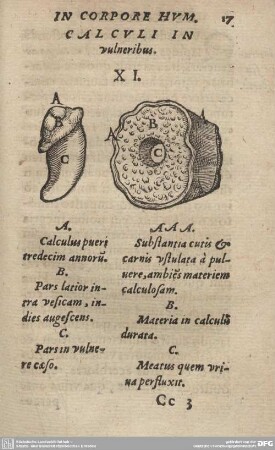 IN CORPORE HVM. 17
CALCVLI IN
vulneribus.
XI.
A
B
C
A
B
C
A
A.
Calculus pueri
tredecim annorũ.
B.
Pars latior in-
tra vesicam, in-
dies augescens.
C.
Pars in vulne-
re cæso.
A A A.
Substantia cutis &
carnis vstulata à pul-
uere, ambiẽs materiem
calculosam.
B.
Materia in calculũ
durata.
C.
Meatus quem vri-
na perfluxit.
Cc 3
DFG